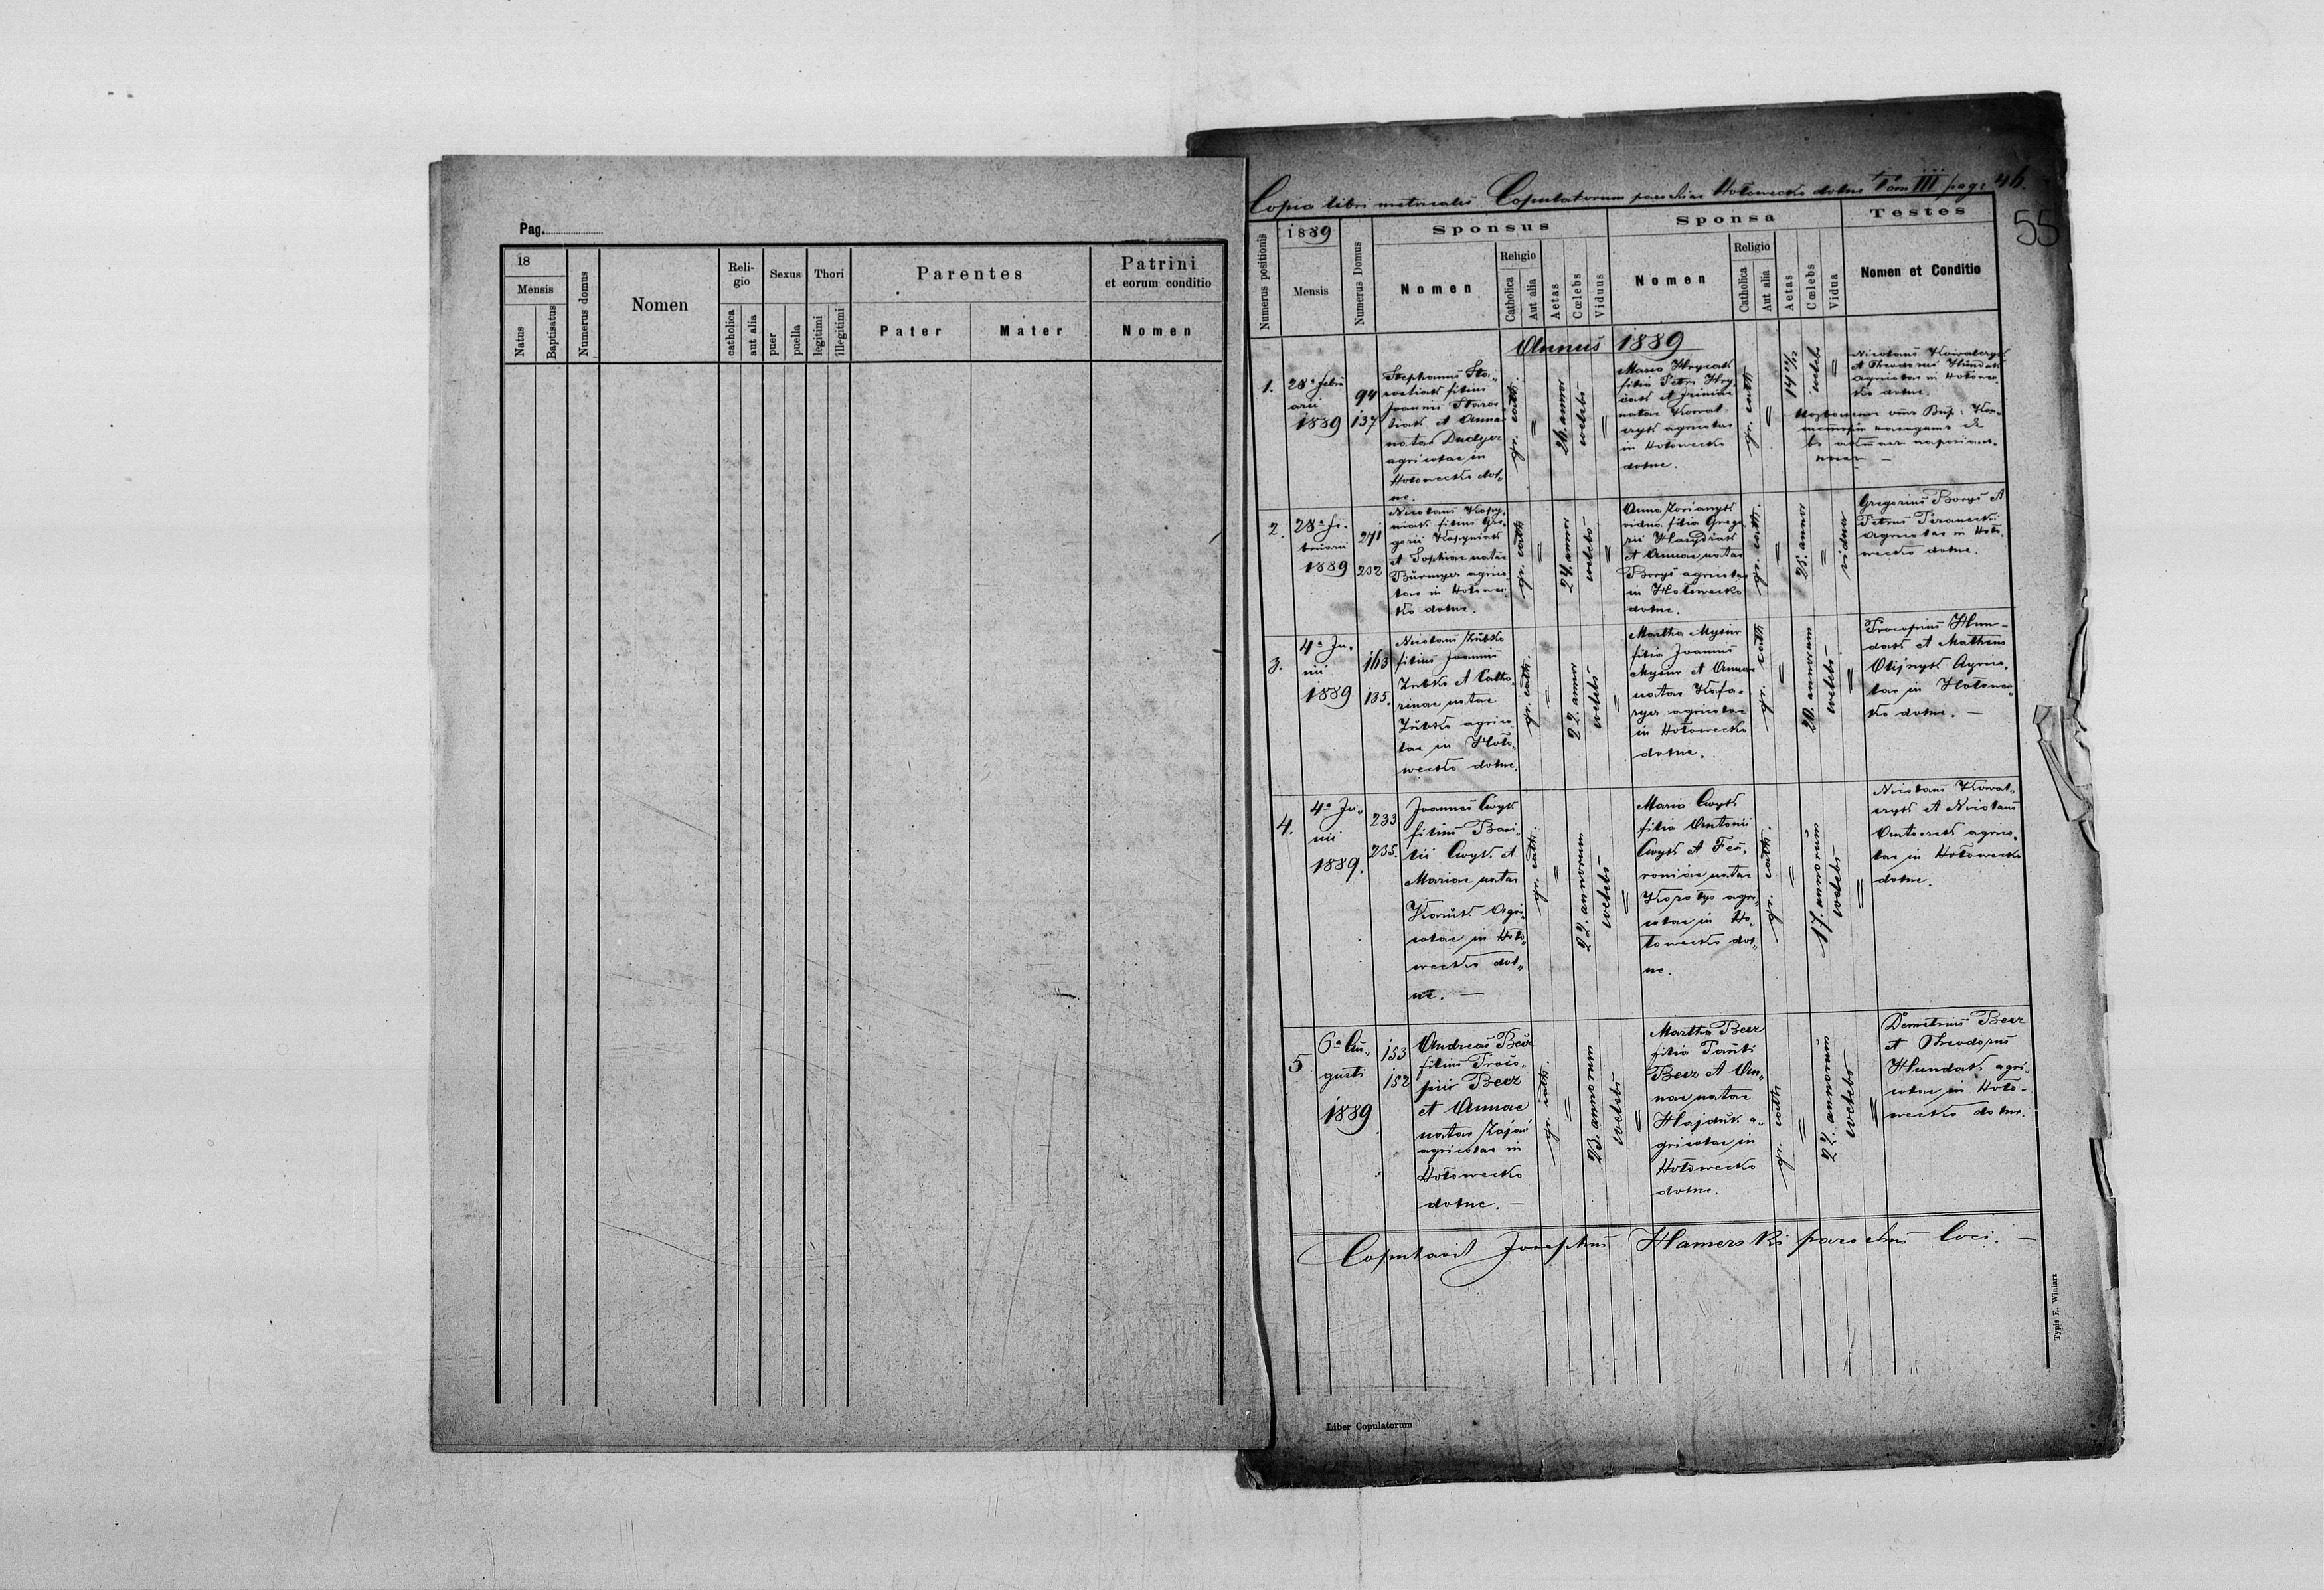 Pag.
18
Mensis
Natus
Baptisatus
Numerus domus
Nomen
Reli-
gio
catholica
aut alia
Sexus
puer
puella
Thori
legitimi
illegitimi
Parentes
Pater
Mater
Patrini
et eorum conditio
Nomen
Copia libri metricalis Copulatorum parochiae Hołowecko dolne Tom III pag: 46.
55
Numerus positionis
1889
Mensis
Numerus Domus
Sponsus
Nomen
Religio
Catholica
Aut alia
Aetas
Cœlebs
Viduus
Sponsa
Nomen
Religio
Catholica
Aut alia
Aetas
Cœlebs
Vidua
Testes
Nomen et Conditio
Annus 1889
1.
28a Febru
arii
1889
94
137
Stephanus Sta-
rostiak filius
Joannis Staros
tiak et Annae
natae Dudycz
agricolae in
Hołowecko dol-
ne.
gr. cath.
26. annor
coelebs
Maria Hrycak
filia Petri Hry
cak et
natae Kowal-
czyk agricolae
in Hołowecko
dolne.
gr. cath
14
coelebs
Nicolaus Kowalczyk
et Theodorus Hundak
agricolae in Hołowec
ko dolne.
2.
28a Fe-
bruarii
1889
241
202
Nicolaus Kopy-
niak filius Gre-
gorii Kopyniak
et Sophiae natae
agrico-
lae in Hołowec
ko dolne.
gr. cath
24. annor
coelebs
Anna
vidua filia Grego
rii
et Annae natae
Borys agricolae
in Hołowecko
dolne.
gr. cath.
25. annor
vidua
Gregorius Borys et
Petrus
Agricolae in Hoło-
wecko dolne.
3.
4a Ju-
nii
1889
163
135.
Nicolaus Zubko
filius Joannis
Zubko et Catha-
rinae natae
Zubko agrico-
lae in Hoło-
wecko dolne.
gr. cath.
22. annor
coelebs
Martha Mysiur
filia Joannis
Mysiur et Annae
natae
agricolae
in Hołowecko
dolne.
gr. cath
20. annorum
coelebs
Procopius Hun-
dak et Matheus
Olijnyk Agrico-
lae in Hołowec-
ko dolne. —
4.
4a Ju-
nii
1889.
233
235.
Joannes Cwyk
filius Basi-
lii Cwyk et
Mariae natae
Agri-
colae in Hoło-
wecko dol-
ne. —
gr. cath.
22. annorum
coelebs
Maria Cwyk
filia Antonii
Cwyk et Fev-
roniae natae
agri-
colae in Ho-
łowecko dol-
ne.
gr. cath.
17. annorum
coelebs
Nicolaus Kowal-
czyk et Nicolaus
agrico-
lae in Hołowecko
dolne.
5
6a Au-
gusti
1889
153
152
Andreas Becz
filius Proco-
pii Becz
et Annae
natae Zając
agricolae in
Hołowecko
dolne. —
gr. cath.
23. annorum
coelebs
Martha Becz
filia Pauli
Becz et An-
nae natae
Hajduk a-
gricolae in
Hołowecko
dolne.
gr. cath
22. annorum
coelebs
Demetrius Becz
et Theodorus
Hundak agri-
colae in Hoło-
wecko dolne.
Copulavit Josephus Hamerski parochus loci. —
Liber Copulatorum
Typis E. Winiarz